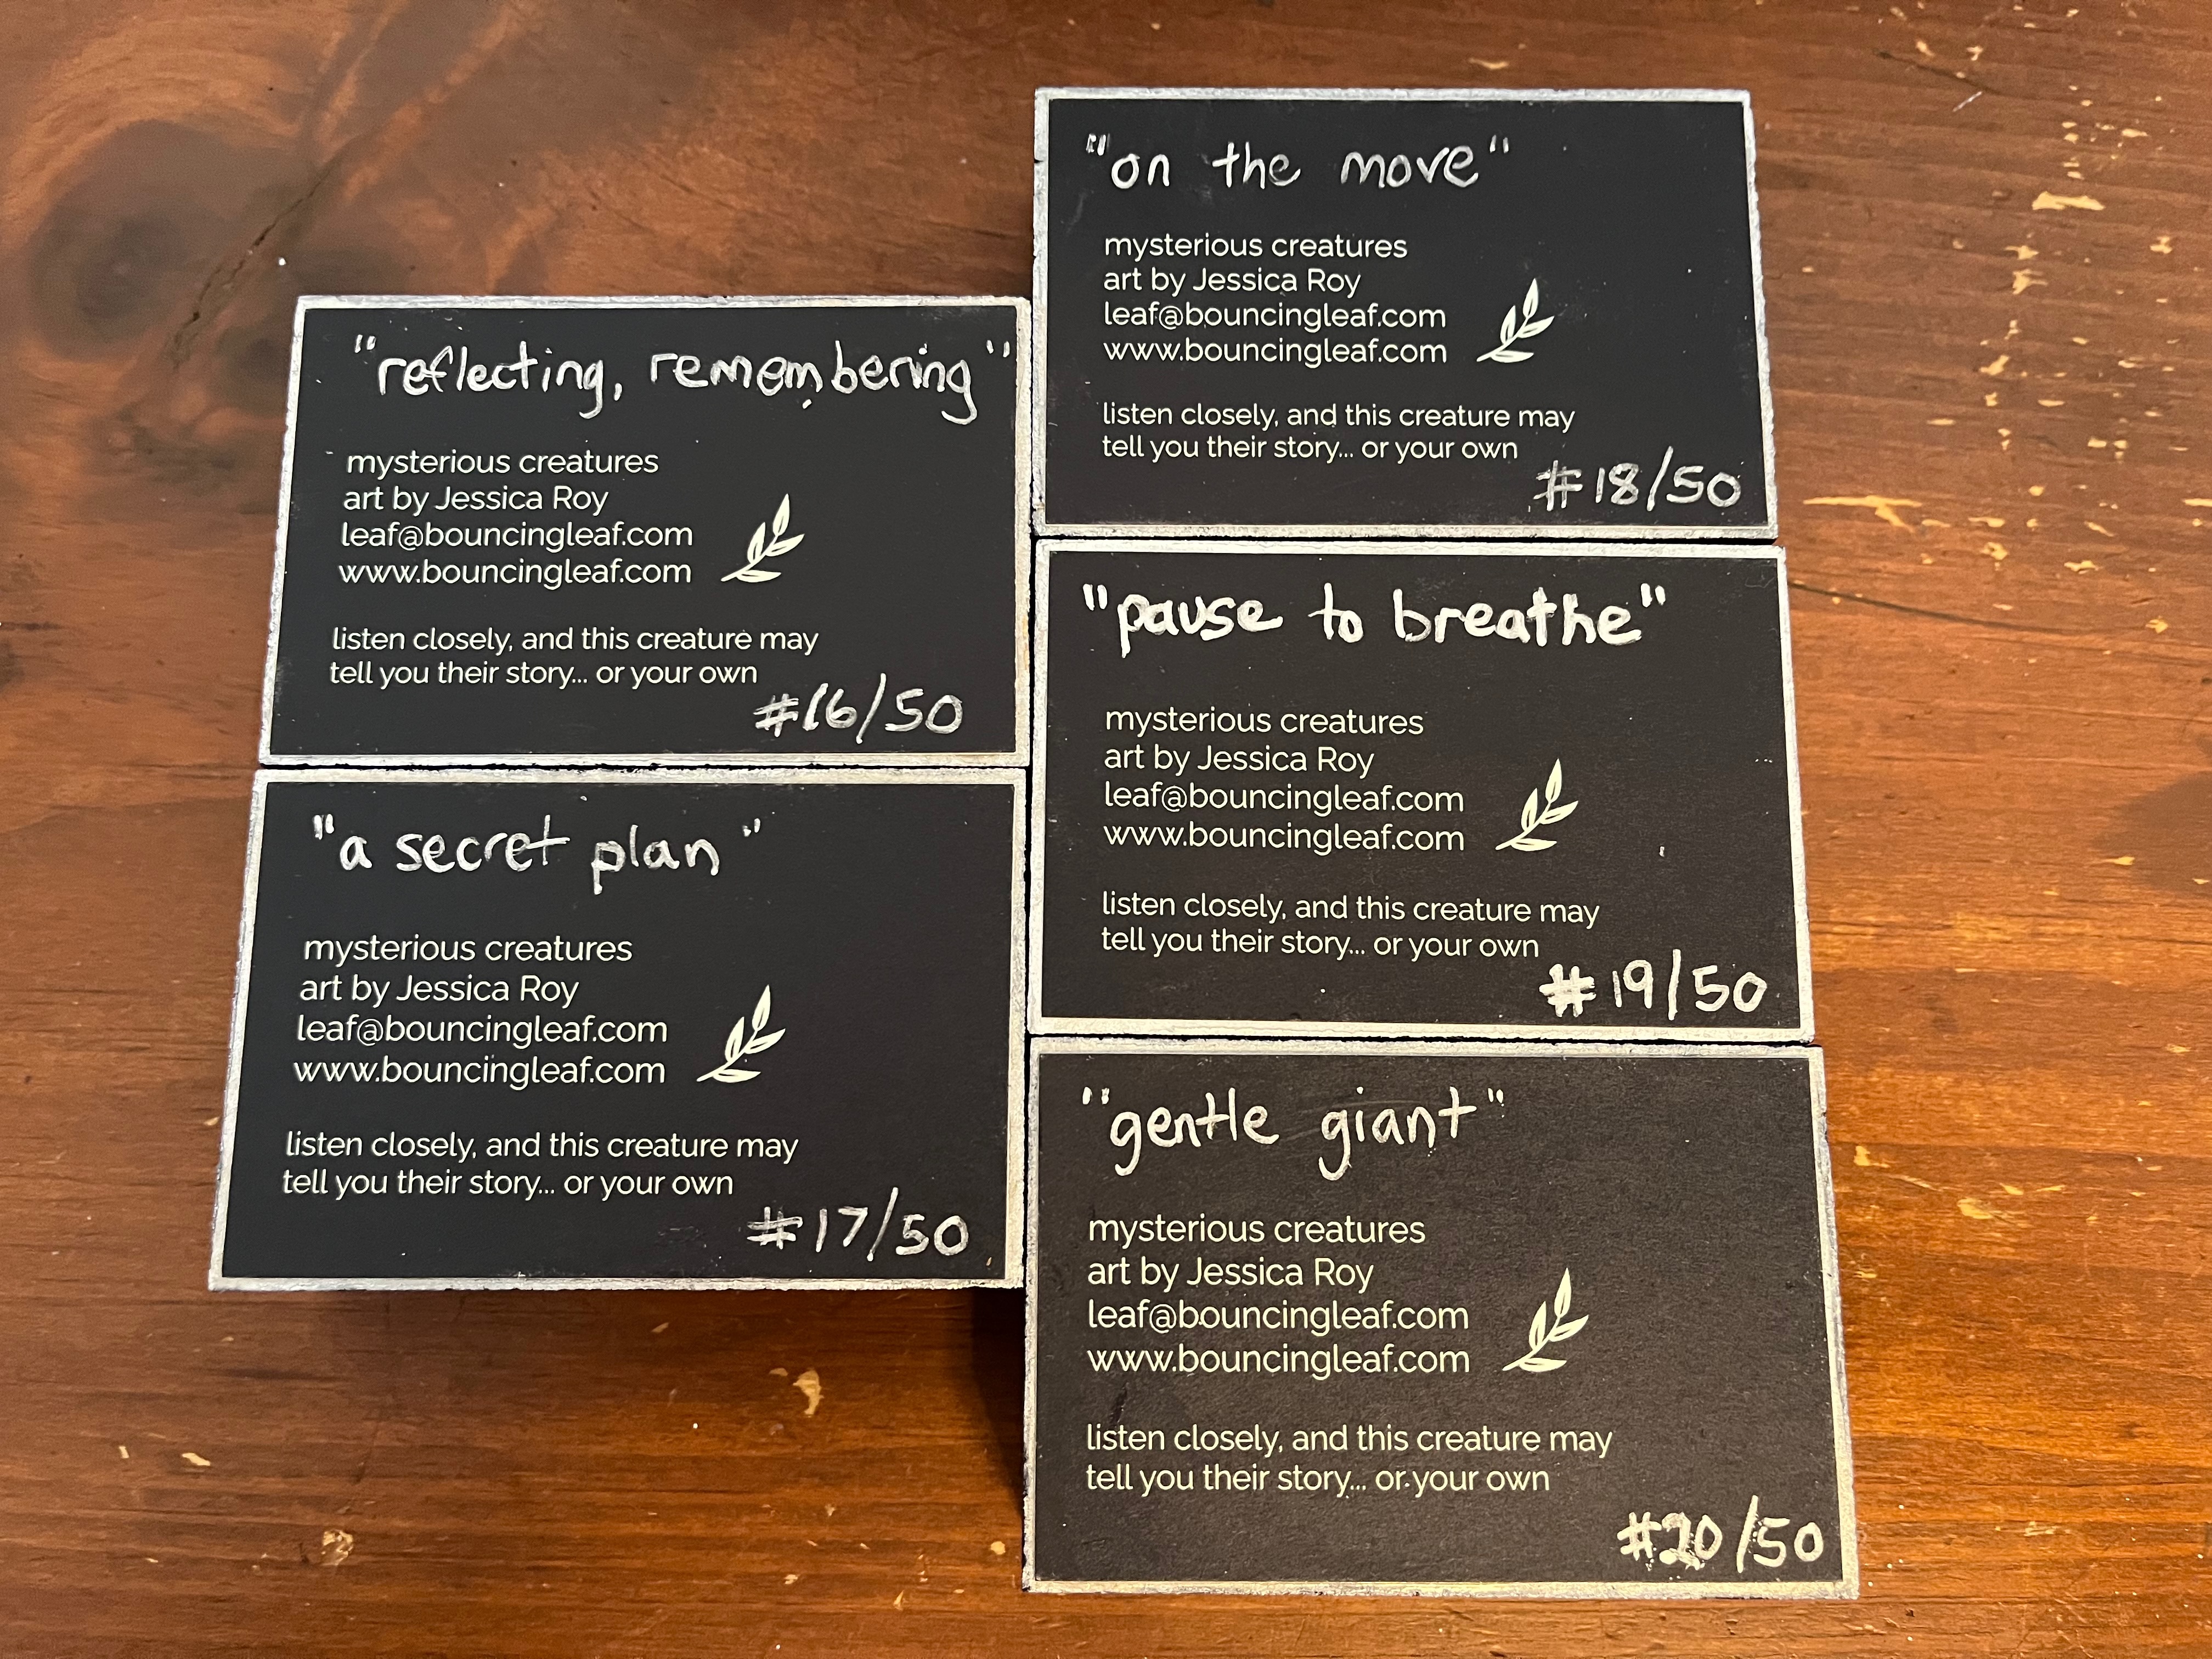 "reflecting, remembering"
mysterious creatures
art by Jessica Roy
leaf@bouncingleaf.com
www.bouncingleaf.com
listen closely, and this creature may
tell you their story... or your own
#16/50
"a secret plan"
mysterious creatures
art by Jessica Roy
leaf@bouncingleaf.com
www.bouncingleaf.com
listen closely, and this creature may
tell you their story... or your own
#17/50
"on the move"
mysterious creatures
art by Jessica Roy
leaf@bouncingleaf.com
www.bouncingleaf.com
listen closely, and this creature may
tell you their story... or your own
#18/50
"pause to breathe"
mysterious creatures
art by Jessica Roy
leaf@bouncingleaf.com
www.bouncingleaf.com
listen closely, and this creature may
tell you their story... or your own
#19/50
"gentle giant"
mysterious creatures
art by Jessica Roy
leaf@bouncingleaf.com
www.bouncingleaf.com
listen closely, and this creature may
tell you their story... or your own
#20/50